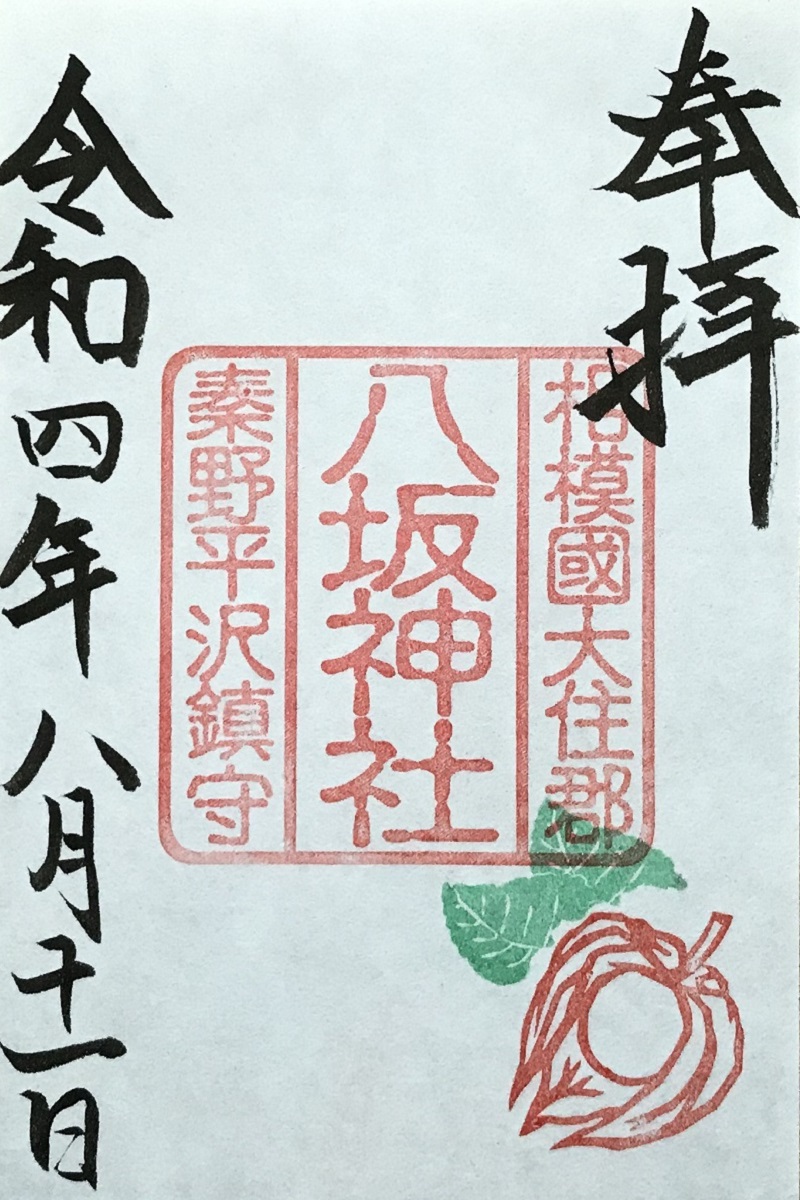 奉拝
相模國大住郡
八坂神社
秦野平沢鎮守
令和四年八月十一日